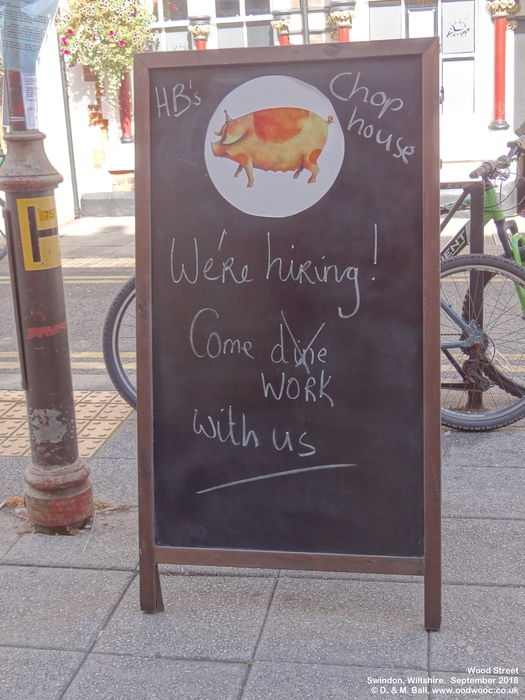 HB's Chop
house
We're hiring!
Come dine
WORK
with us
Wood Street
Swindon, Wiltshire. September 2018
© D. & M. Ball, www.oodwooc.co.uk